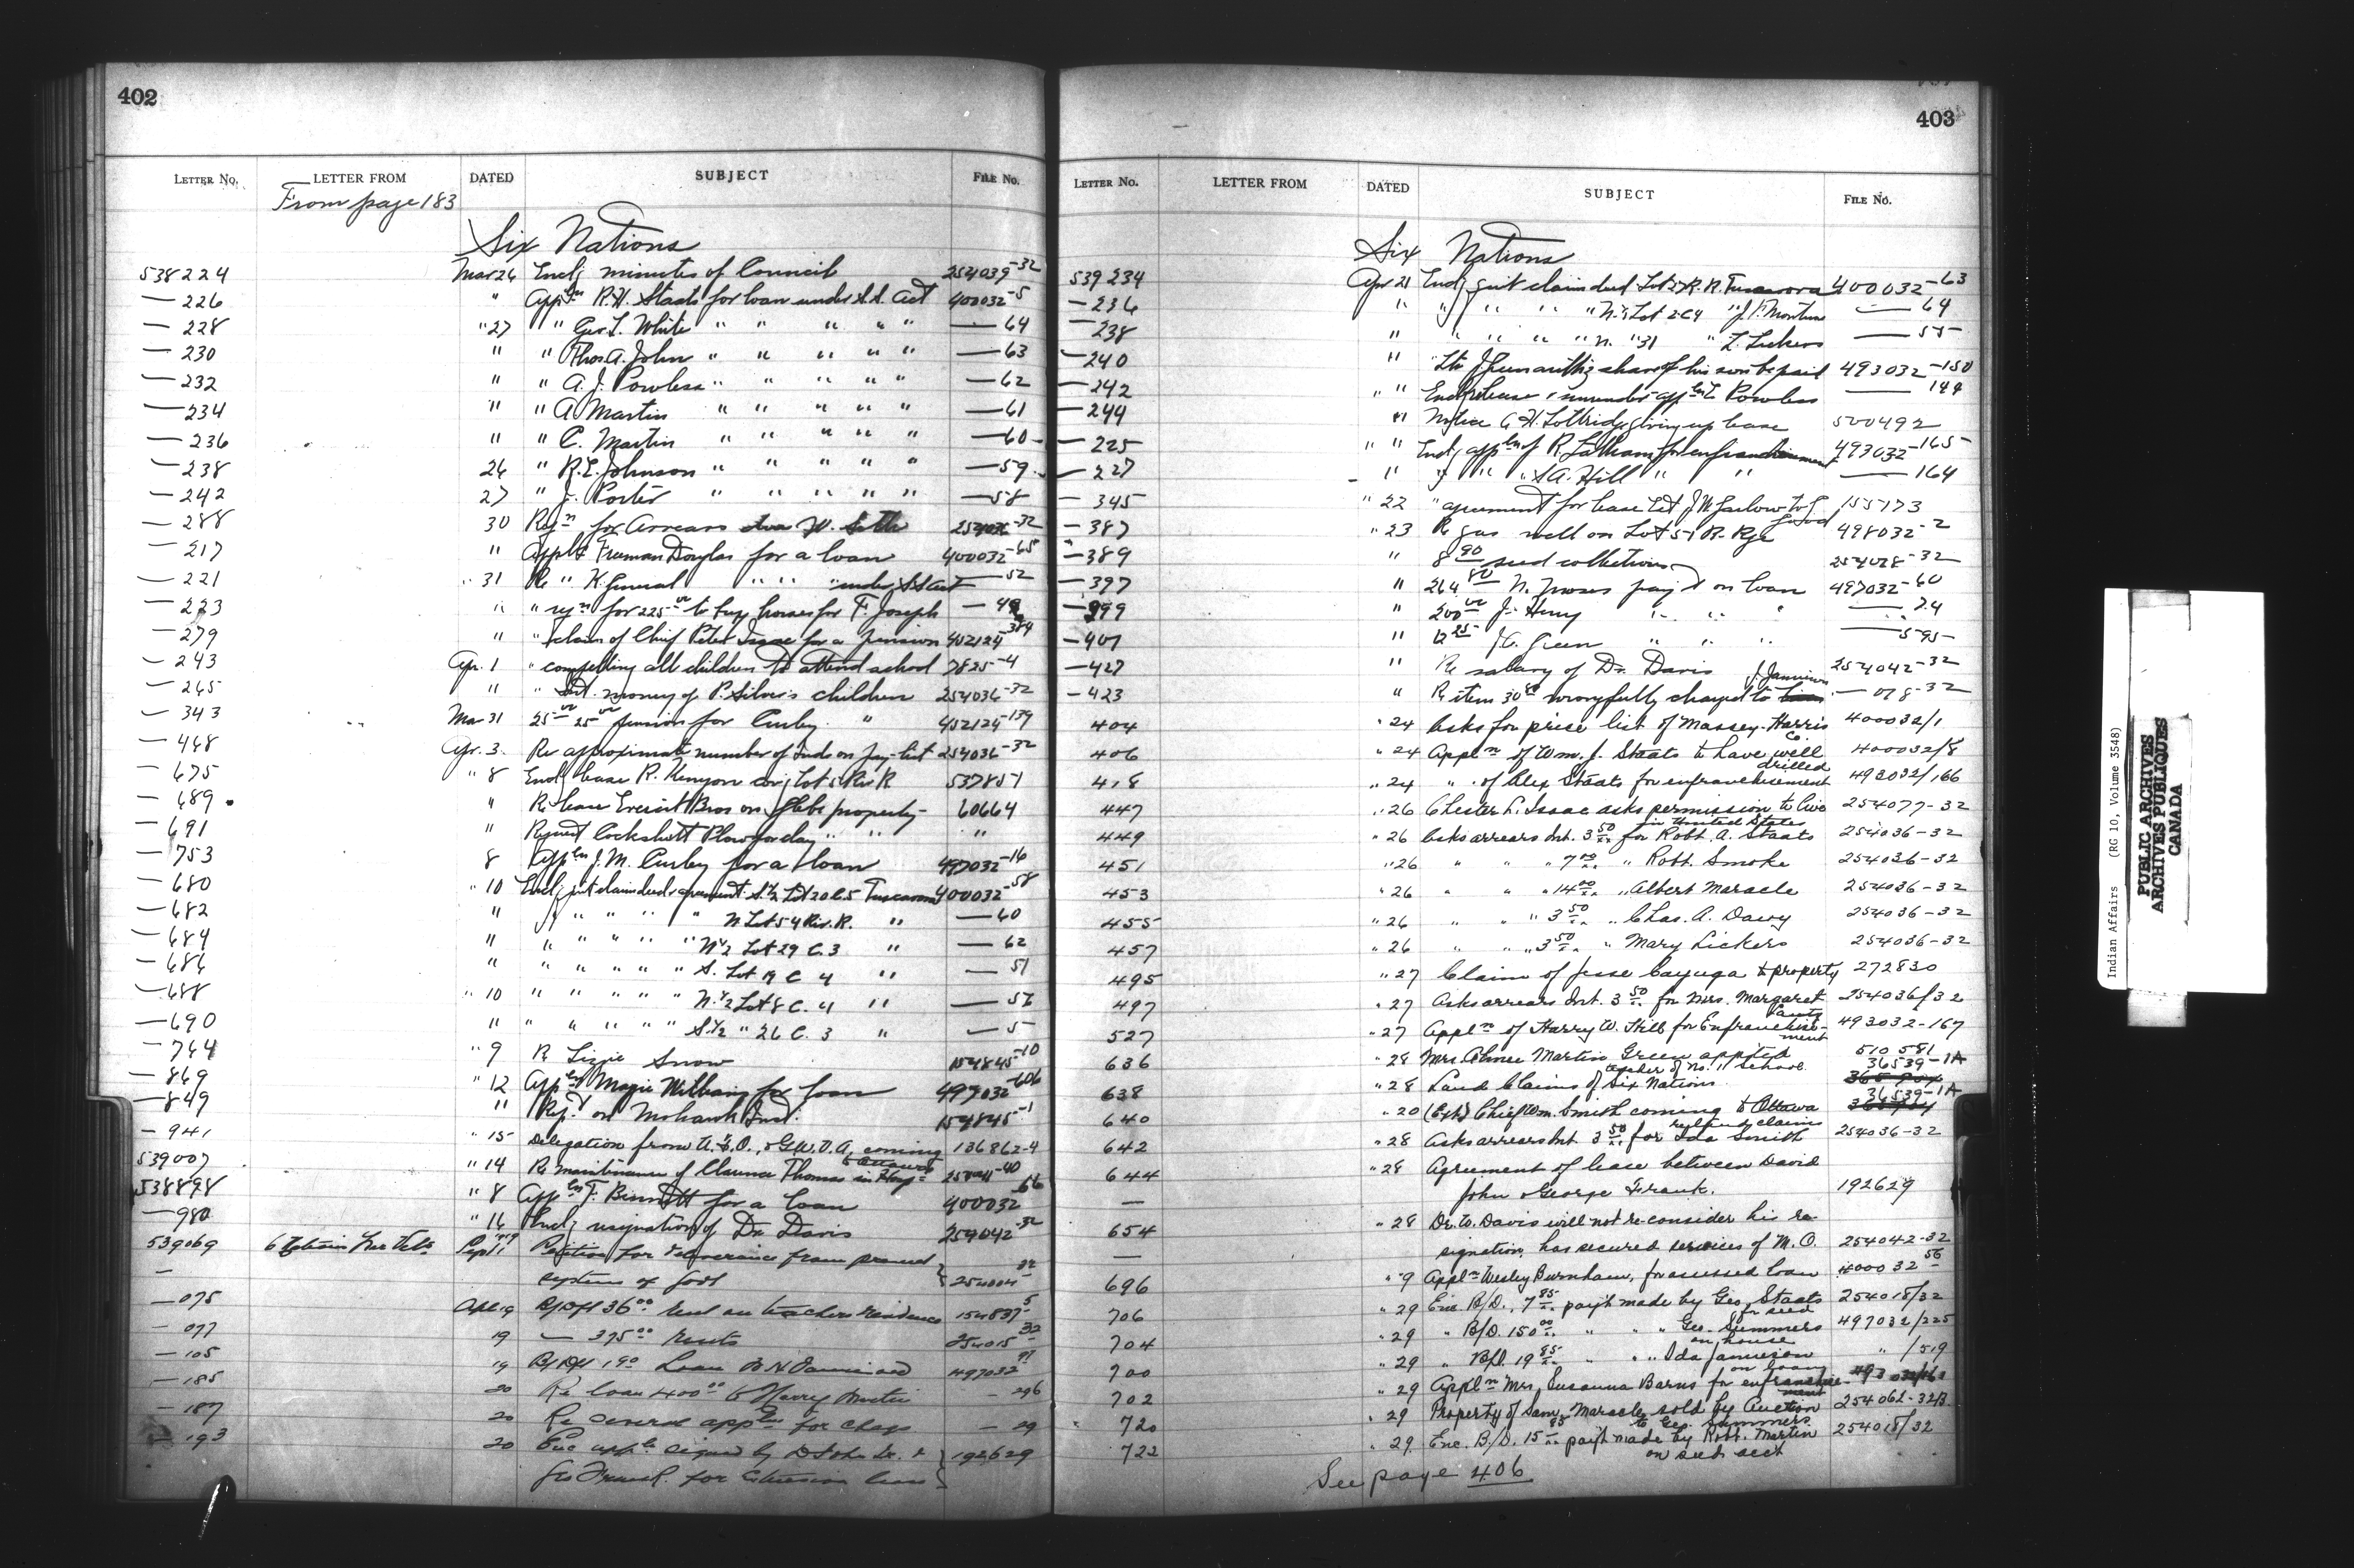 402
LETTER NO. LETTER FROM DATED SUBJECT FILE NO.
From page 183
Six Nations
538224 Mar 26 Encl'g minutes of Council 254039-32
— 226 " Appl'n R.H. Staats for loan under S.S. Act 400032-5
— 228 " 27 " Geo. L. White " " " " " — 64
— 230 " " Thos. A. John " " " " " — 63
— 232 " " A. J. Powless " " " " " — 62
— 234 " " A Martin " " " " " — 61
— 236 " " C. Martin " " " " " — 60
— 238 26 " R.E. Johnson " " " " " — 59
— 242 27 " J. Porter " " " " " — 58
— 288 30 Req'n for Arrears
— 217 " Appl'n Freeman Douglas for a loan 400032-65
— 221 " 31 Re " K. General " " " under S.S. Act — 52
— 223 " " req'n for 225 00 to buy horses for F. Joseph — 49
— 279 " " claim of Chief Peter Isaac for a pension 402124-384
— 243 Apr. 1 " compelling all children to attend school 7825-4
— 265 " " Int. money of P. Silver's children 254036-32
— 343 Mar 31 25 00 25 00 pension for Curley " 452124-139
— 448 Apr. 3. Re approximate number of Inds on Pay-list 254036-32
— 675 " 8 Encl'g lease R. Kenyon cov'g Lot 5 Riv R 537851
— 689 " Re lease Everett Bros on Glebe property 60664
— 691 " Request Cockshutt Plow for clay " " "
— 753 8 Appl'n J. M. Curley for a loan 497032-16
— 680 " 10 Encl'g quit claim deed & agreement S½ Lot 20 C.5 Tuscarora 400032-58
— 682 " " " " " " N Lot 54 Riv. R. " — 60
— 684 " " " " " " N½ Lot 29 C. 3 " — 62
— 686 " " " " " " S. Lot 19 C 4 " — 51
— 688 " 10 " " " " " N.½ Lot 8 C. 4 " — 57
— 690 " " " " " " S½ " 26 C. 3 " — 5
— 744 " 9 Re Lizzie Snow 154845-10
— 869 " 12 Appl'n Magie Williams for loan 497032-606
— 849 " Rep't on Mohawk Inst. 154845-1
— 941 " 15 Delegation from U.F.O., & G.W.V.A. coming to Ottawa 136862-4
539007 " 14 Re maintenance of Clarence Thomas in Hosp. -40
538898 " 8 Appl'n F. Bennett for a loan 400032-66
— 980 " 16 Encl'g resignation of Dr. Davis 254042-32
539069 Sept 1 Petition for deliverance from present
— system of Govt 254004-32
— 075 Apl 19 B/Dft 36 00 rent on teachers residence 154837-5
— 077 19 — 375 00 rents 254015-32
— 105 19 B/Dft Loan 497032
— 185 20 Re loan 400 00 to Harry Martin — 296
— 187 20 Re several appl'ns for — 29
— 193 20 Enc appl'n signed by D John Sr. & 192629
Geo Frank. for extension lease
403
LETTER NO. LETTER FROM DATED SUBJECT FILE NO.
Six Nations
539234 Apr 21 Encl'g quit claim deed Lot 27 R. R. Tuscarora 400032-63
— 236 " " " " " N.½ Lot 2 C 4 " J. F. Monture — 64
— 238 " " " " " N. " 31 " L. Lickers — 55
— 240 " Ltr J Green auth'g share of his son be paid 493032-150
— 242 " " Encl'g release & surrender appl'n L Powless — 144
— 244 " Notice C. H. Lottridge giving up lease 500492
— 225 " " Encl'g appl'n of R. Latham for enfranchisement 493032-165
— 227 " " " " S A. Hill " " — 164
— 345 " 22 " agreement for lease let J W Garlow to G. 155173
— 387 " 23 Re gas well on Lot 57 R. Rge 498032-2
— 389 " 8 90 seed collections 254028-32
— 397 " 264 80 N. Moses pay't on loan 497032-60
— 399 " 200 00 J. Henry " " " — 74
— 401 " 12 25 J.C. Green " " " — 595
— 427 " Re salary of Dr. Davis 254042-32
— 423 " Re item 30 80 wrongfully charged to J. Jamieson — 018-32
404 " 24 Asks for price list of Massey-Harris Co. 400032/1
406 " 24 Appl'n of Wm. J. Staats to have well drilled 400032/8
418 " 24 " of Alex Staats for enfranchisement 493032/166
447 " 26 Chester L. Isaac asks permission to live in United States 254077-32
449 " 26 Asks arrears Int. 3 50 for Robt. A. Staats 254036-32
451 " 26 " " " 7 00 " Robt. Smoke 254036-32
453 " 26 " " " 14 00 " Albert Maracle 254036-32
455 " 26 " " " 3 50 " Chas. A. Davy 254036-32
457 " 26 " " " 3 50 " Mary Lickers 254036-32
495 " 27 Claim of Jesse Cayuga to property 272830
497 " 27 Asks arrears Int. 3 50 for Mrs. Margaret 254036/32
527 " 27 Appl'n of Harry W. Hill for Enfranchisement 493032-167
636 " 28 Mrs. Martin Green appt'ed teacher of No. 11 School. 510581
638 " 28 Land Claims of Six Nations. 36539-1A
640 " 20 (Ext) Chief Wm. Smith coming to Ottawa re land claims 36539-1A
642 " 28 Asks arrears Int. 3 50 for Ida Smith 254036-32
644 " 28 Agreement of lease between David
— John & George Frank. 192629
654 " 28 Dr. W. Davis will not re-consider his re-
— signation, has secured services of M. O. 254042-32
696 " 9 Appl'n Wesley Burnham, for assessed loan 400032-56
706 " 29 Enc. B/D. 7 85 pay't made by Geo. Staats for seed 254018/32
704 " 29 " B/D. 150 00 " " " Geo. Summers on house 497032/225
700 " 29 " B/D. 19 85 " " " Ida Jamieson on loan " /519
702 " 29 Appl'n Mrs. Susanna Barns for enfranchisement
720 " 29 Property of Sam. Maracle sold by Auction to Geo. Summers. 254062-32B.
722 " 29 Enc. B/D. 15 85 pay't made by Robt. Martin on seed acct 254018/32
See page 406
Indian Affairs (RG 10, Volume 3548)
PUBLIC ARCHIVES
ARCHIVES PUBLIQUES
CANADA